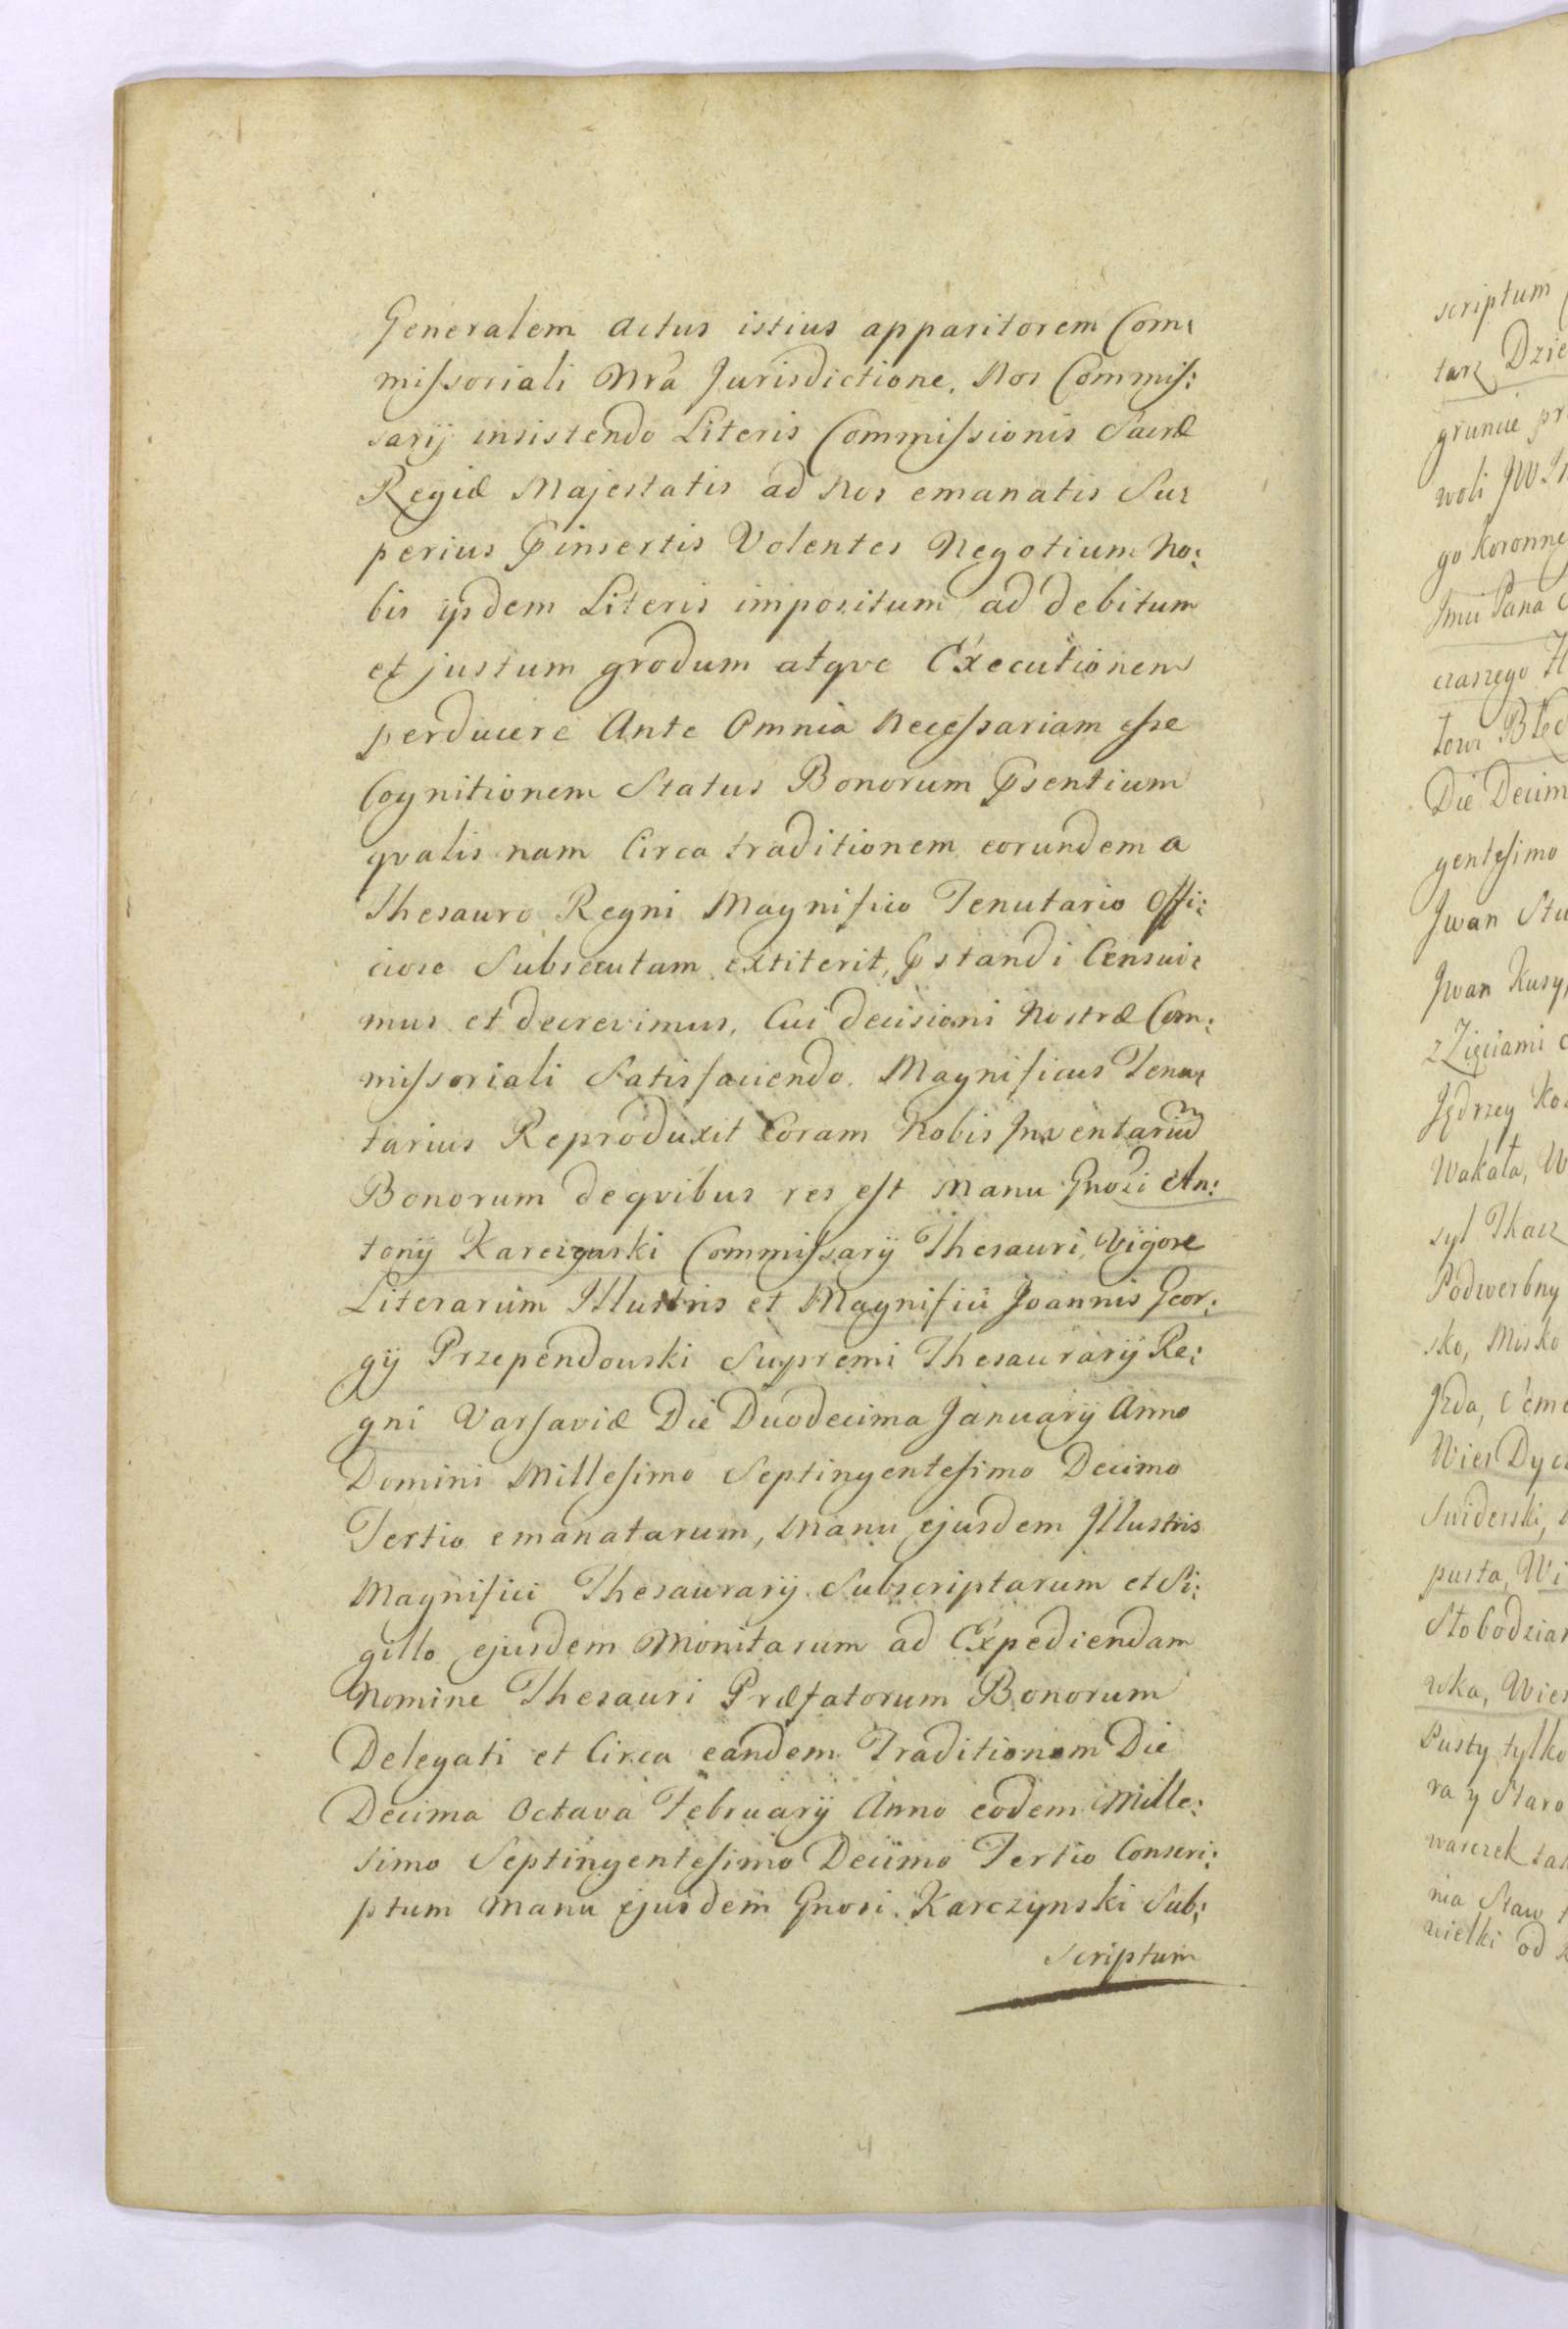 Generalem actus istius apparitorem Com:
missoriali Nrã Jurisdictione. Nos Commis:
sarij insistendo Literis Commissionis Sacræ
Regiæ Majestatis ad Nos emanatis Su:
perius Pinsertis Volentes Negotium No:
bis ijsdem Literis impositum ad debitum
et justum grodum atqve Executionem
perducere Ante Omnia Necessariam esse
Cognitionem Status Bonorum Psentium
qvalis nam Circa traditionem eorundem a
Thesauro Regni Magnifico Tenutario Offi:
ciose Subsecutam extiterit, Pstandi Censui:
mus et decrevimus. Cui decisioni Nostræ Com:
missoriali Satisfaciendo. Magnificus Tenu:
tarius Reproduxit Coram Nobis Inventariũ
Bonorum deqvibus res est Manu Gnosi An:
tonij Karczynski Commissarij Thesauri, Vigore
Literarum Illustris et Magnifici Joannis Geor:
gij Przependowski Supremi Thesaurarij Re:
gni Varsaviæ Die Duodecima Januarij Anno
Domini Millesimo Septingentesimo Decimo
Tertio emanatarum, Manu ejusdem Illustris
Magnifici Thesaurarij Subscriptarum et Si:
gillo ejusdem Monitarum ad Expediendam
Nomine Thesauri Præfatorum Bonorum
Delegati et Circa eandem Traditionem Die
Decima Octava Februarij Anno eodem Mille:
simo Septingentesimo Decimo Tertio Conscri:
ptum Manu ejusdem Gnosi Karczynski Sub:
scriptum
4
scriptum
tarz Dzie
gruncie pr
woli JW
go Koronne
Jmci Pana
czaszego
Die Decim
gentesimo
Jwan Stu
Jwan Kusy,
z Zięciami
Jędrzey Ko
Wakała, W
syl Tkacz
Podwerbny
sko, Misko
Wies Dy
Swiderski,
pusta, Wi
Słobodzia
wka, Wies
Pusty tylko
ra y Staro
warczek ta
nia Staw
wielki od